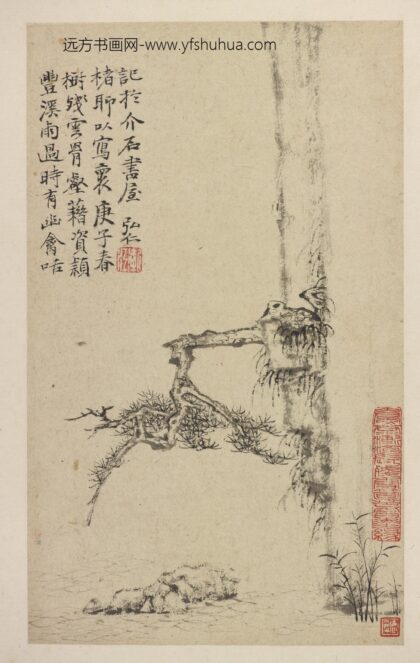 远方书画网-www.yfshuhua.com
豐溪雨過時有幽禽咕
樹殘雲骨壑藉資穎
楮聊以寫褱庚子春
記於介石書屋 弘仁